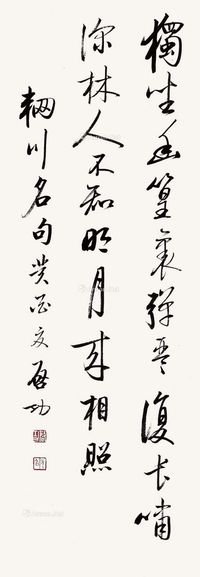 獨坐幽篁裏彈琴復長嘯
深林人不知明月来相照
輞川名句癸酉夏啟功